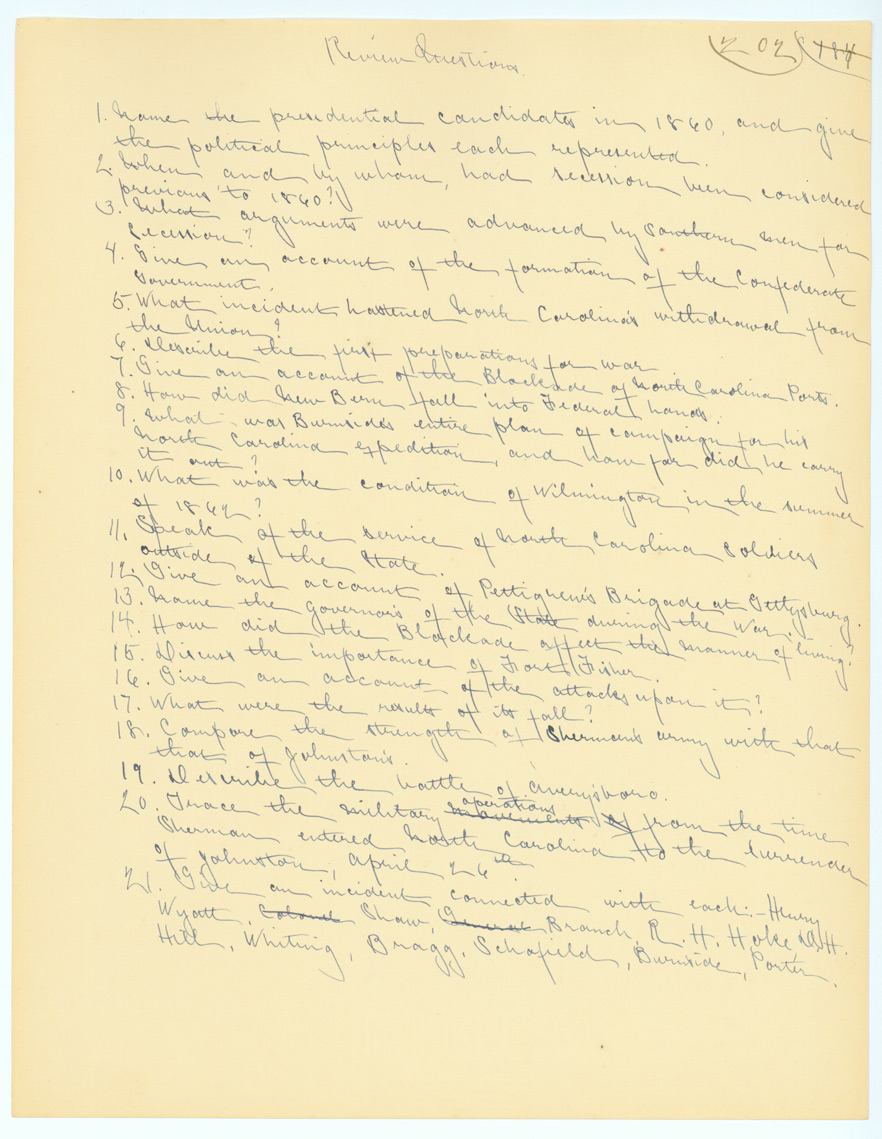 Review Questions.
202
184
1. Name the presidential candidates in 1860, and give
the political principles each represented.
2. When and by whom, had secession been considered
previous to 1860?
3. What arguments were advanced by Southern men for
Secession?
4. Give an account of the formation of the Confederate
Government.
5. What incident hastened North Carolina's withdrawal from
the Union?
6. Describe the first preparations for war.
7. Give an account of the Blockade of North Carolina Ports.
8. How did New Bern fall into Federal hands.
9. What was Burnside's entire plan of campaign for his
North Carolina expedition, and how far did he carry
it out?
10. What was the condition of Wilmington in the summer
of 1862?
11. Speak of the service of North Carolina Soldiers
outside of the State.
12. Give an account of Pettigrew's Brigade at Gettysburg.
13. Name the governors of the State during the War.
14. How did the Blockade affect the manner of living?
15. Discuss the importance of Fort Fisher.
16. Give an account of the attacks upon it?
17. What were the results of its fall?
18. Compare the strength of Sherman's army with that
that of Johnston's.
19. Describe the battle of Averysboro.
20. Trace the military movements operations of from the time
Sherman entered North Carolina to the Surrender
of Johnston, April 26th
21. Give an incident connected with each:- Henry
Wyatt, Colonel Shaw, General Branch, R. H. Hoke, D. H.
Hill, Whiting, Bragg, Schofield, Burnside, Porter.